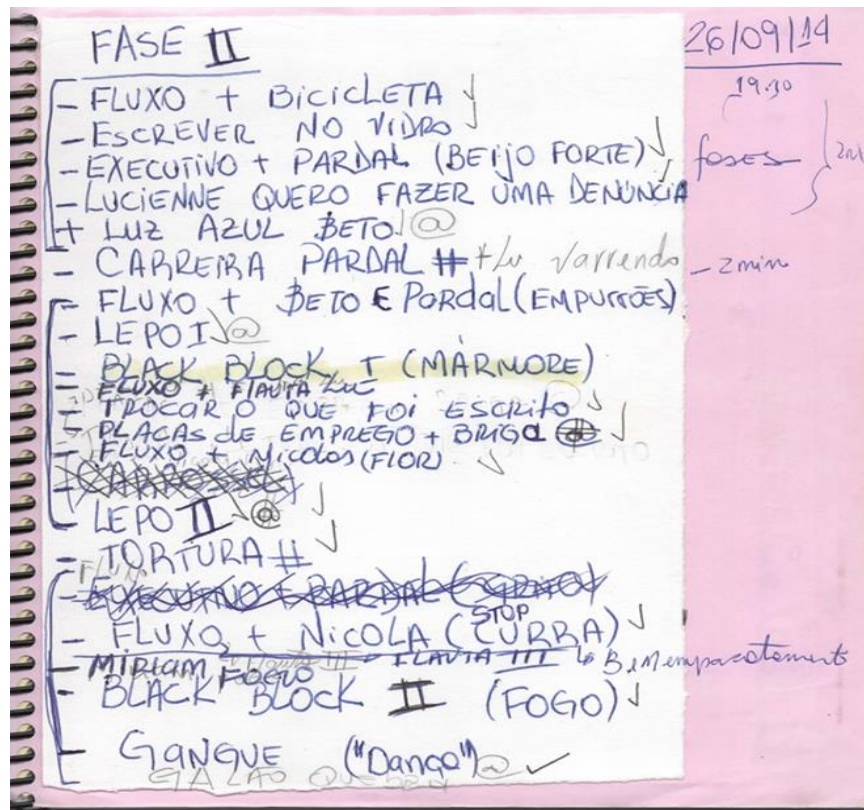 FASE II
26/09/14
19.30
- FLUXO + BICICLETA
- ESCREVER NO VIDRO
- EXECUTIVO + PARDAL (BEIJO FORTE)
foses
- LUCIENNE QUERO FAZER UMA DENÚNCIA
+ LUZ AZUL BETO @
- CARREIRA PARDAL # + Lu Varrendo - 2 min
- FLUXO + BETO E PARDAL (EMPURRÕES)
- LEPO I @
- BLACK BLOCK I (MÁRMORE)
- FLUXO # FLAUTA LUC
- TROCAR O QUE FOI ESCRITO
- PLACAS de EMPREGO + BRIGA @
- FLUXO + Nicolas (FLOR)
- CARROSSEL
- LEPO II @
- TORTURA #
FLUXO
- EXECUTIVO E PARDAL
- FLUXO + NICOLA (CURRA)
STOP
- MIRIAM FOGO FLAUTA III
- BLACK BLOCK II (FOGO)
- GANGUE ("Dança") @